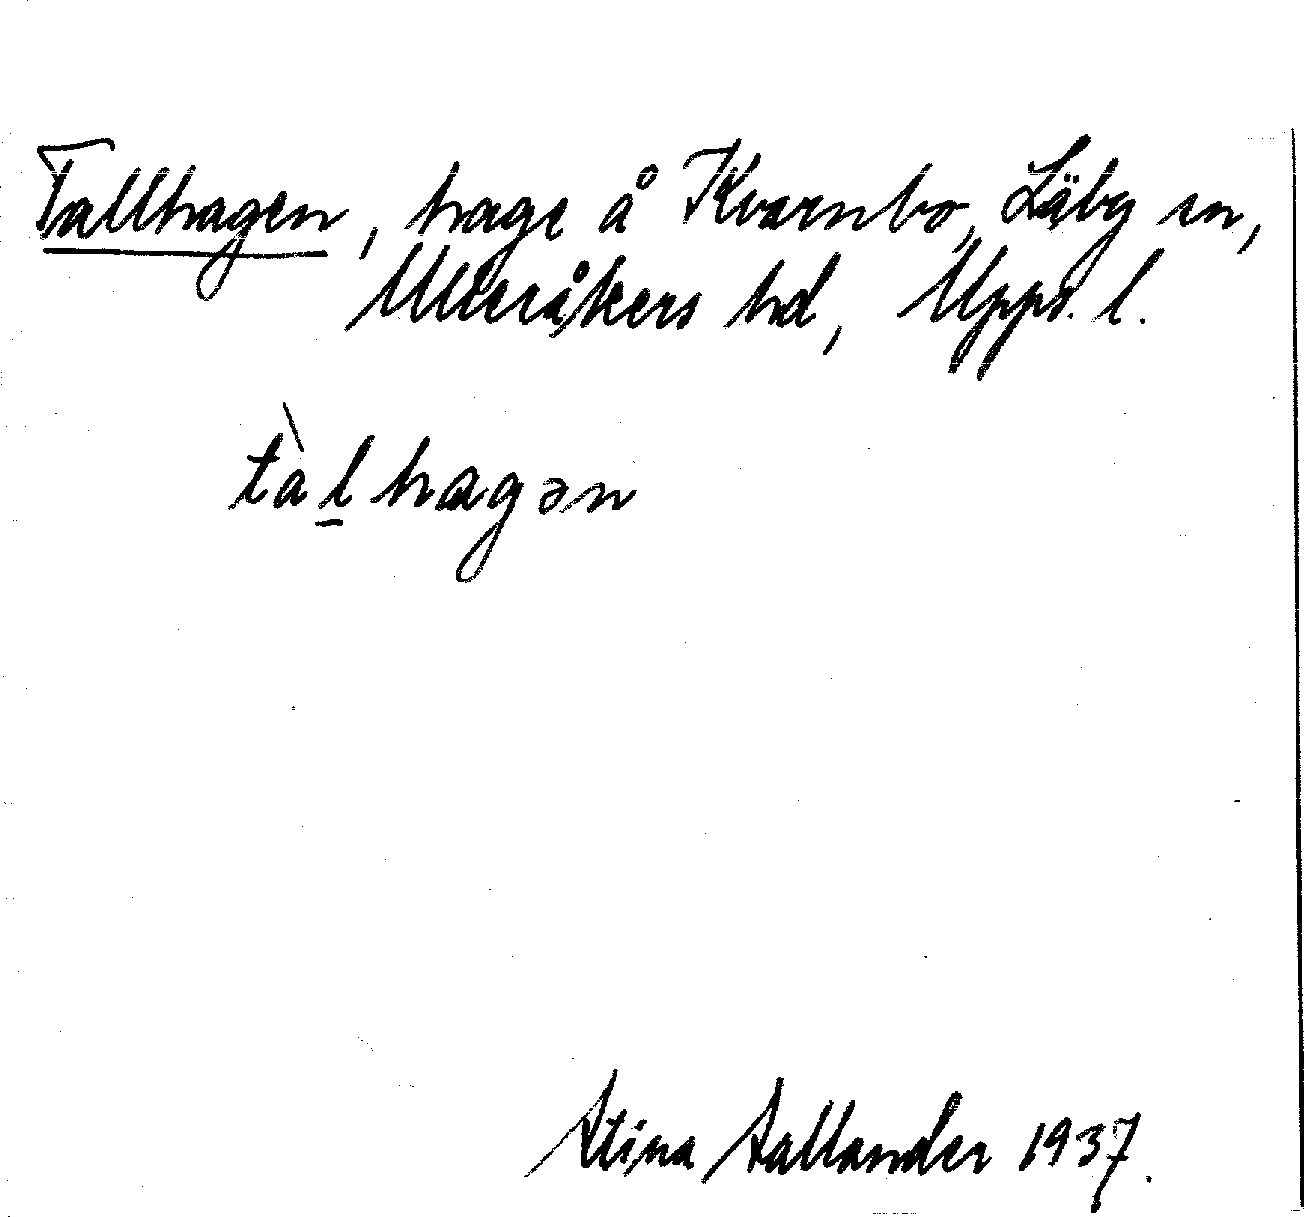 Tallhagen, hage å Kvarnbo, Läby sn,
Ulleråkers hd, Upps. l.
tàl̲hagən
Stina Sallander 1937.